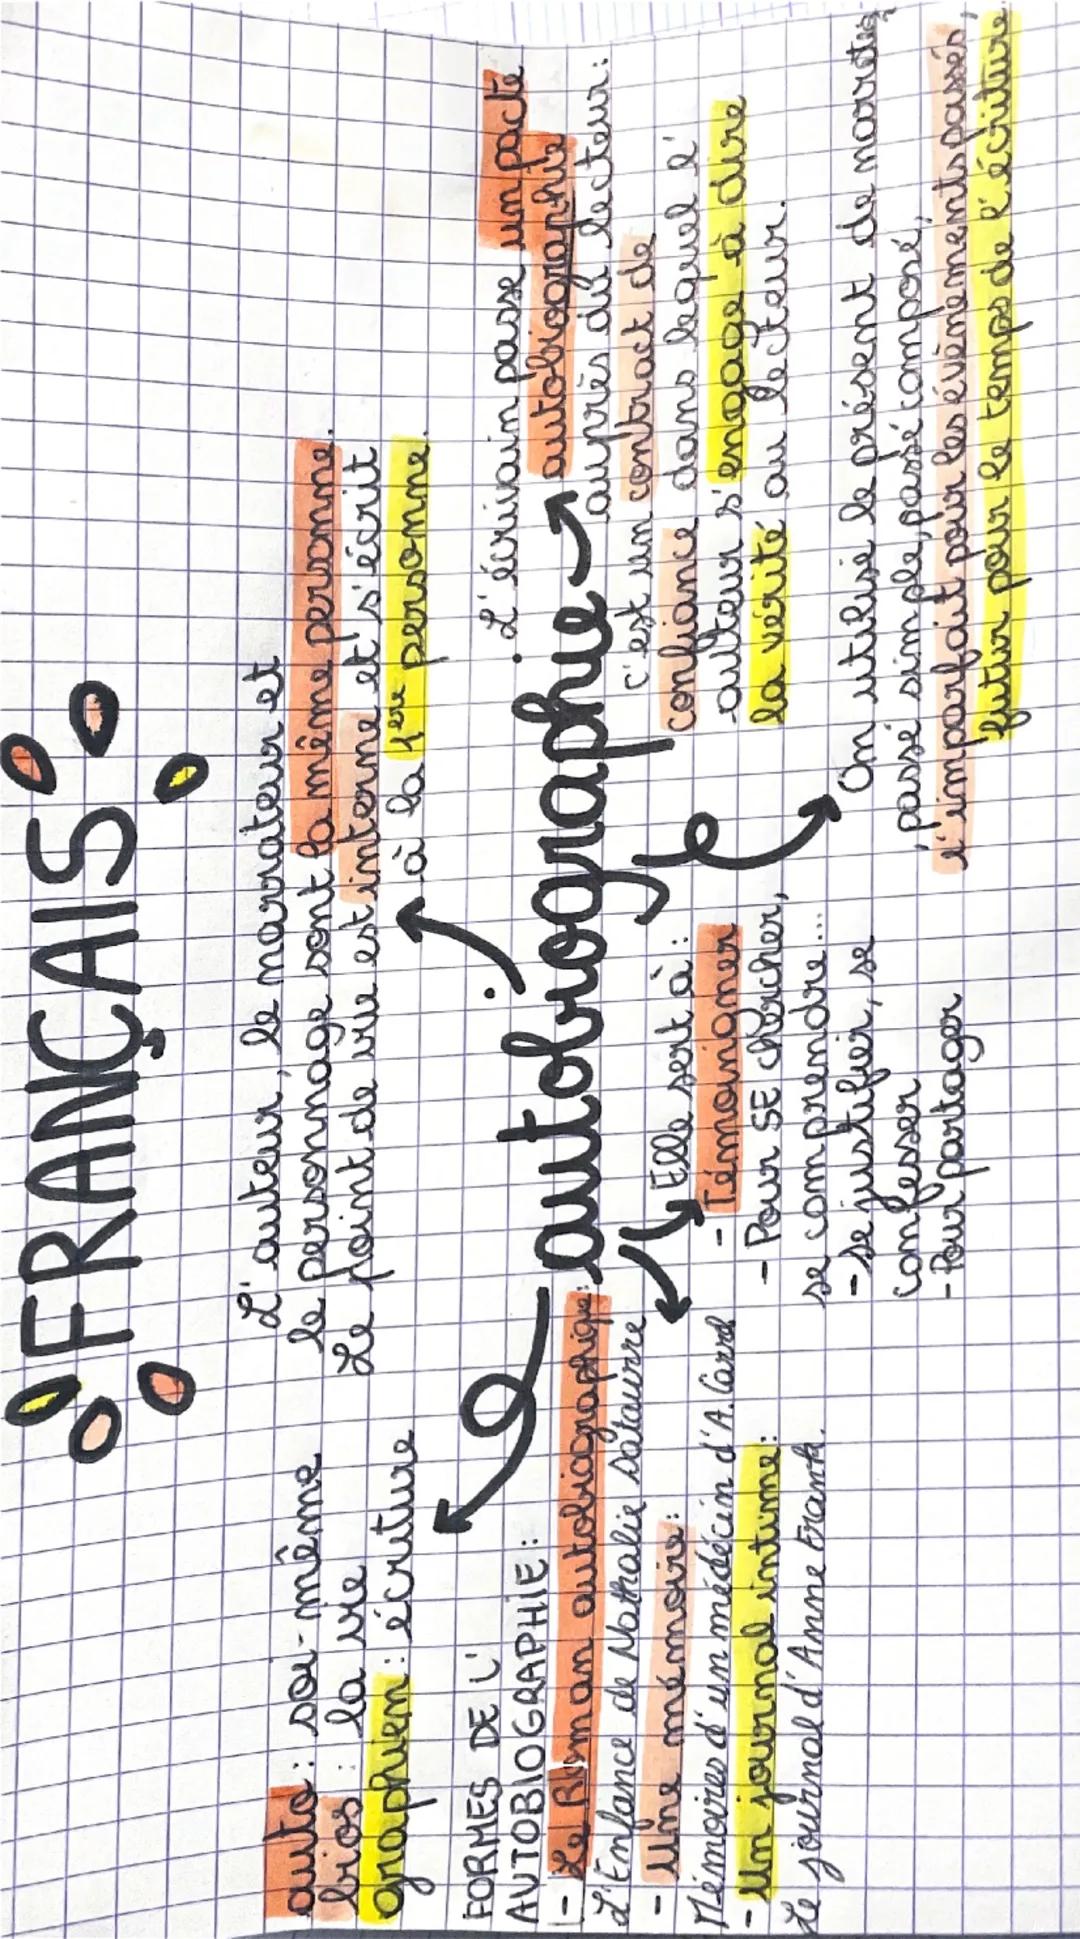 FRANÇAIS
auto: soi-même
bios: la vie
graphien: écriture
L'auteur, le narrateur et
le personnage sont la même personne.
Le point de vue est interne et s'écrit
à la 1ère personne.
autobiographie
FORMES DE L'
AUTOBIOGRAPHIE:
- Le Roman autobiographique:
L'Enfance de Nathalie
- Une mémoire:
Mémoires d'un médécin d'A.
- Un journal intime:
Le journal d'Anne Frank.
Elle sert à:
- Témoingner
- Pour SE chercher,
se comprendre...
- se justifier, se
confesser
- Pour partager
L'écrivain passe un pacte
autobiographie
auprès du lecteur:
c'est un contract de
confiance dans lequel l'
auteur s'engage à dire
la vérité au lecteur.
On utilise le présent de
passé simple, passé composé,
l'imparfait pour les évènements passés,
futur pour le temps de l'écriture.